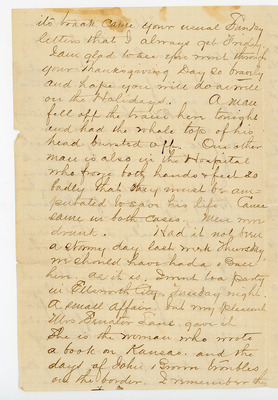 its track came your usual Sunday
letter that I always get Friday
I am glad to see you went through
your Thanksgiving Day so bravely
and hope you will do as well
on the Holidays. A man
fell off the train here tonight
and had the whole top of his
head off. One other
man is also in the Hospital
who froze both hands & feet so
badly that they must be am-
putated to save his life Cause
same in both cases. Men were
drunk. Had it not been
a stormy day last week Thursday
we should have had a
here. as it is, I went to a party
in Ellsworth City, Tuesday night.
A small affair, but very pleasant
Mrs Senator Lane, gave it
She is the woman who wrote
a book on Kansas, and the
days of John Brown troubles
on the border. I remember the